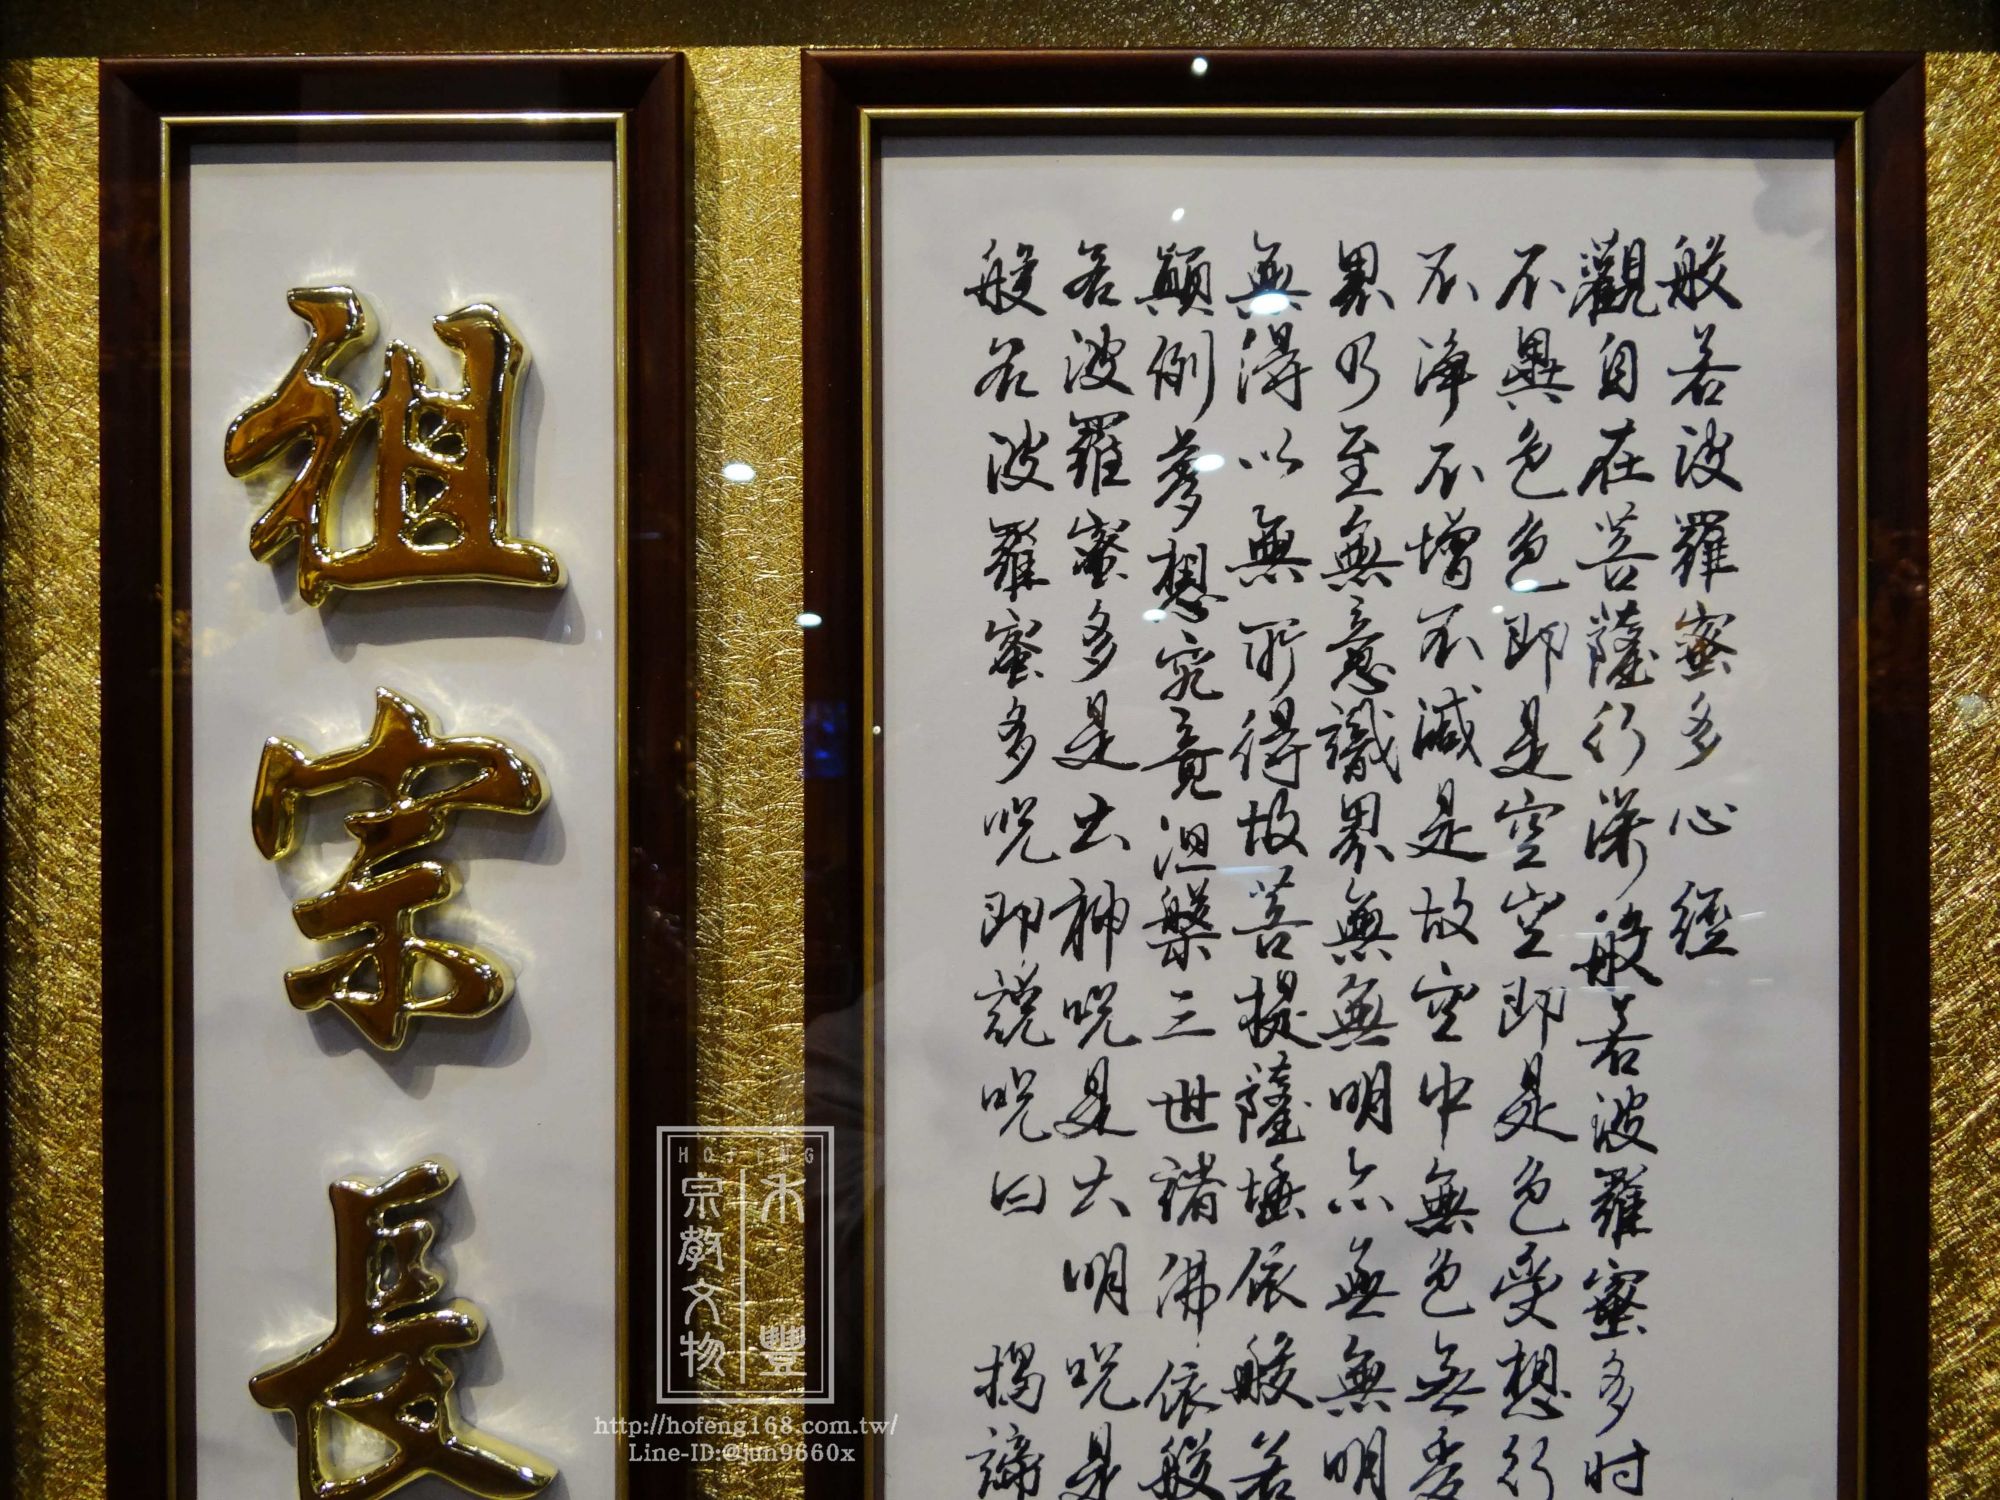 般若波羅蜜多心經
觀自在菩薩行深般若波羅蜜多時
不異色色即是空空即是色受想行
不淨不增不減是故空中無色無受
界乃至無意識界無無明亦無無明
無得以無所得故菩提薩埵依般若
顛倒夢想究竟涅槃三世諸佛依般
若波羅蜜多是大神咒是大明咒是
般若波羅蜜多咒即說咒曰 揭諦
祖宗長
HOFENG
禾豐
宗教文物
http://hofeng168.com.tw/
Line-ID:@jun9660x